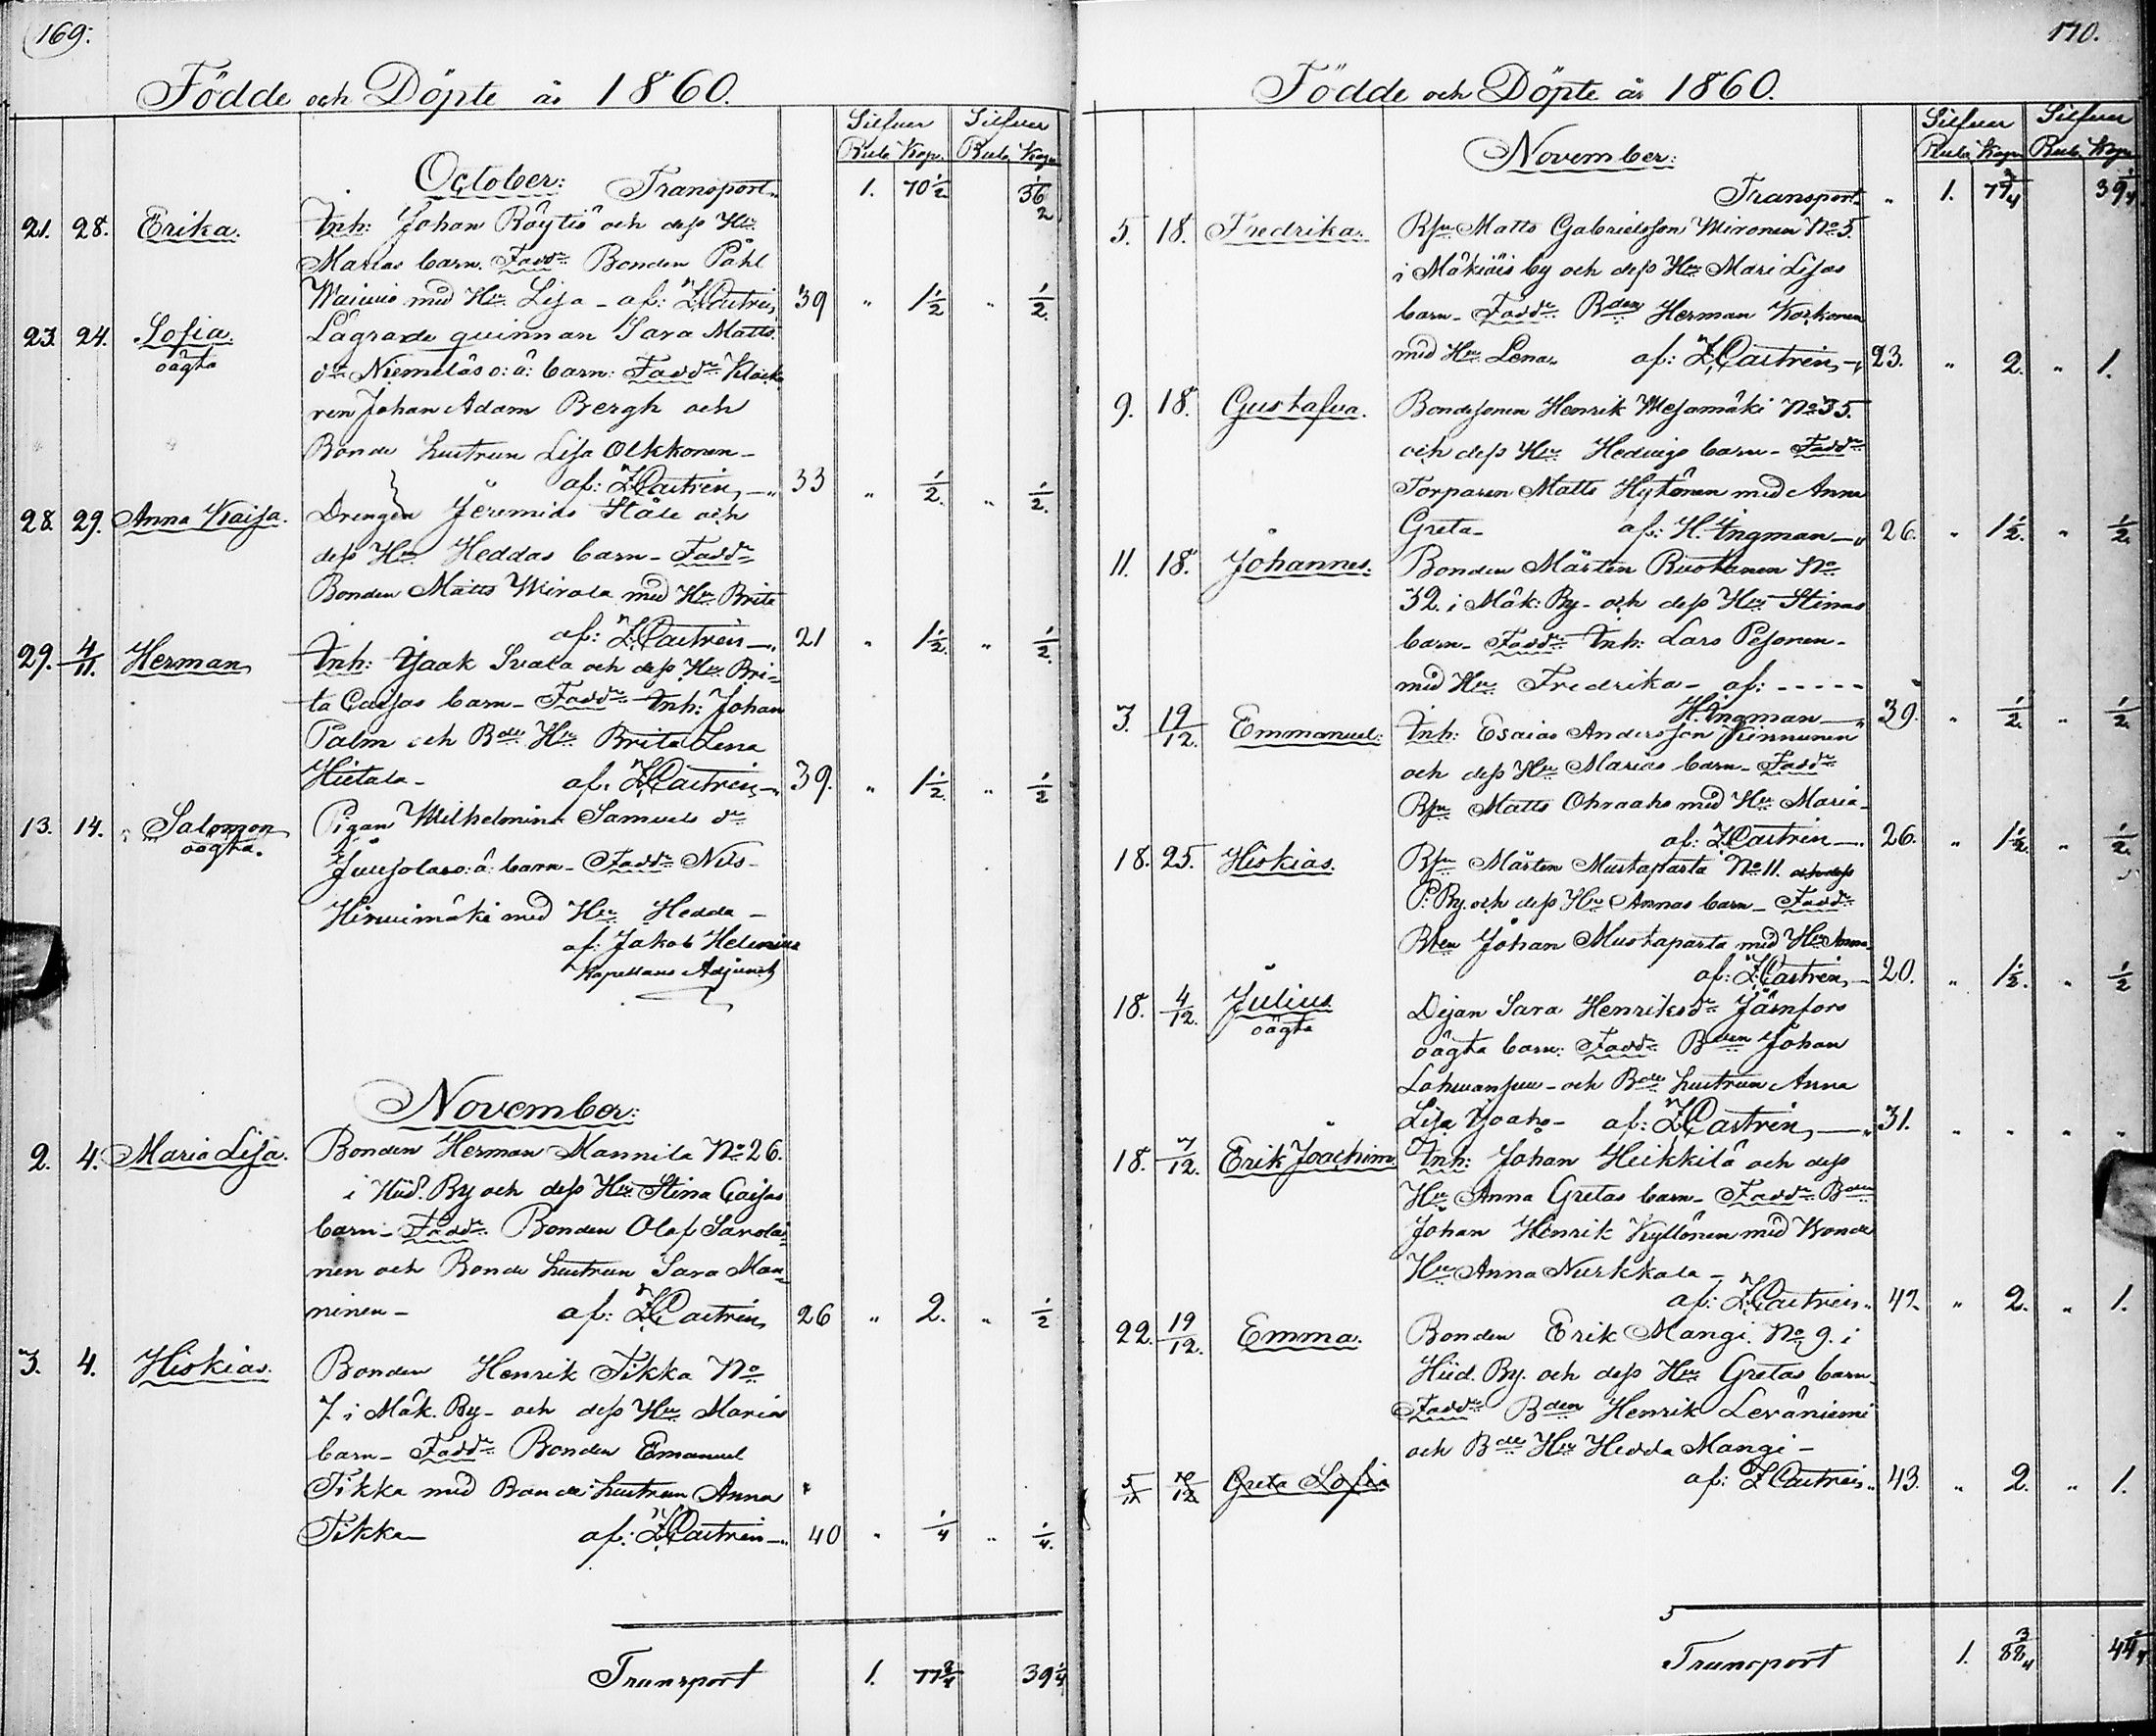 169.
Födde och Döpte år 1860.
Silfver Silfver
Rub. Kop. Rub. Kop.
October: Transport 1. 70 1/2 36 1/2
21. 28. Erika. Inh: Johan Röytiö och dess Hu
Marias barn. Fadd: Bonden Påhl
Wainio med Hu Lisa - af: Z Castrén 39 " 1 1/2 " 1/2.
23. 24. Sofia. Lägrade quinnan Sara Matts
oägta dr Niemeläs o: ä: barn: Fadd: Klocka
ren Johan Adam Bergh och
Bonde hustrun Lisa Olkkonen -
af: Z Castrén, " 33 " 1/2. " 1/2.
28. 29. Anna Kaisa. Drengen Jeremias Ståle och
dess Hu Heddas barn - Fadd:
Bonden Matts Mirola med Hu Brita
af: Z Castrén 21 " 1 1/2. " 1/2.
29. 4/11. Herman Inh: Isaak Svala och dess Hu Bri-
ta Caisas barn - Fadd: Inh: Johan
Palm och Bde Hu Brita Lena
Hietala - af: Z Castrén, " 39. " 1 1/2. " 1/2
13. 14. Salomon Pigan Wilhelmina Samuels dr
oägta. Juusolas o: ä: barn - Fadd: Nils
Hirvimäki med Hu Hedda -
af: Jakob Helenius
Kapellans Adjunct
November:
2. 4. Maria Lisa. Bonden Herman Mannila No 26.
i Hiid. By och dess Hu Stina Caisas
barn - Fadd: Bonden Olof Savolai-
nen och Bonde hustrun Sara Man-
ninen - af: Z Castrén 26 " 2. " 1/2
3. 4. Hiskias. Bonden Henrik Tikka No
7. i Mäk. By - och dess Hu Marias
barn - Fadd: Bonden Emanuel
Tikka med Bonde hustrun Anna
Tikka - af: Z Castrén - " 40 " 1/4 " 1/4.
Transport 1. 77 3/4 39 1/4
170.
Födde och Döpte år 1860.
Silfver Silfver
Rub. Kop. Rub. Kop.
November:
Transport " 1. 77 3/4 39 1/4
5. 18. Fredrika. Bsn Matts Gabrielsson Mironen No 5.
i Mäkiäis by och dess Hu Mari Lisas
barn - Fadd: Bden Herman Korkonen
med Hu Lena. af: Z Castrén - 23. " 2. " 1.
9. 18. Gustafva. Bondesonen Henrik Mesamäki No 35.
och dess Hu Hedvigs barn - Fadd:
Torparen Matts Hytönen med Anna
Greta - af: H. Ingman - " 26. " 1 1/2. " 1/2.
11. 18. Johannes. Bonden Mårten Ruotanen No
32. i Mäk: By - och dess Hu Stinas
barn - Fadd: Inh: Lars Pesonen -
med Hu Fredrika - af: - - - - -
H. Ingman - " 39. " 1/2. " 1/2.
3. 19/12. Emmanuel: Inh: Esaias Andersson Kinnunen
och dess Hu Marias barn - Fadd:
Bsn Matts Ohraaho med Hu Maria -
af: Z Castrén - 26. " 1 1/2. " 1/2.
18. 25. Hiskias. Bsn Mårten Mustaparta No 11. och dess
P: By. och dess Hu Annas barn - Fadd:
Bden Johan Mustaparta med Hu Anna
af: Z Castrén, - 20. " 1 1/2. " 1/2
18. 4/12. Julius. Dejan Sara Henriksdr Jämfors
oägta oägta barn: Fadd: Bden Johan
Lohvansuu - och Bde hustrun Anna
Lisa Joaho - af: Z Castrén, - " 31. " " " "
18. 7/12. Erik Joachim. Inh: Johan Heikkilä och dess
Hu Anna Gretas barn - Fadd: Bden
Johan Henrik Kyllönen med Bonde
Hu Anna Nurkkala -
af: Z Castrén. 42. " 2. " 1.
22. 19/12. Emma. Bonden Erik Mangi. No 9. i
Hiid. By. och dess Hu Gretas barn -
Fadd: Bden Henrik Leväniemi
och Bde Hu Hedda Mangi -
5/11 12 Greta Sofia af: Z Castrén. 43. " 2. " 1.
Transport 1. 88 3/4 44 1/4